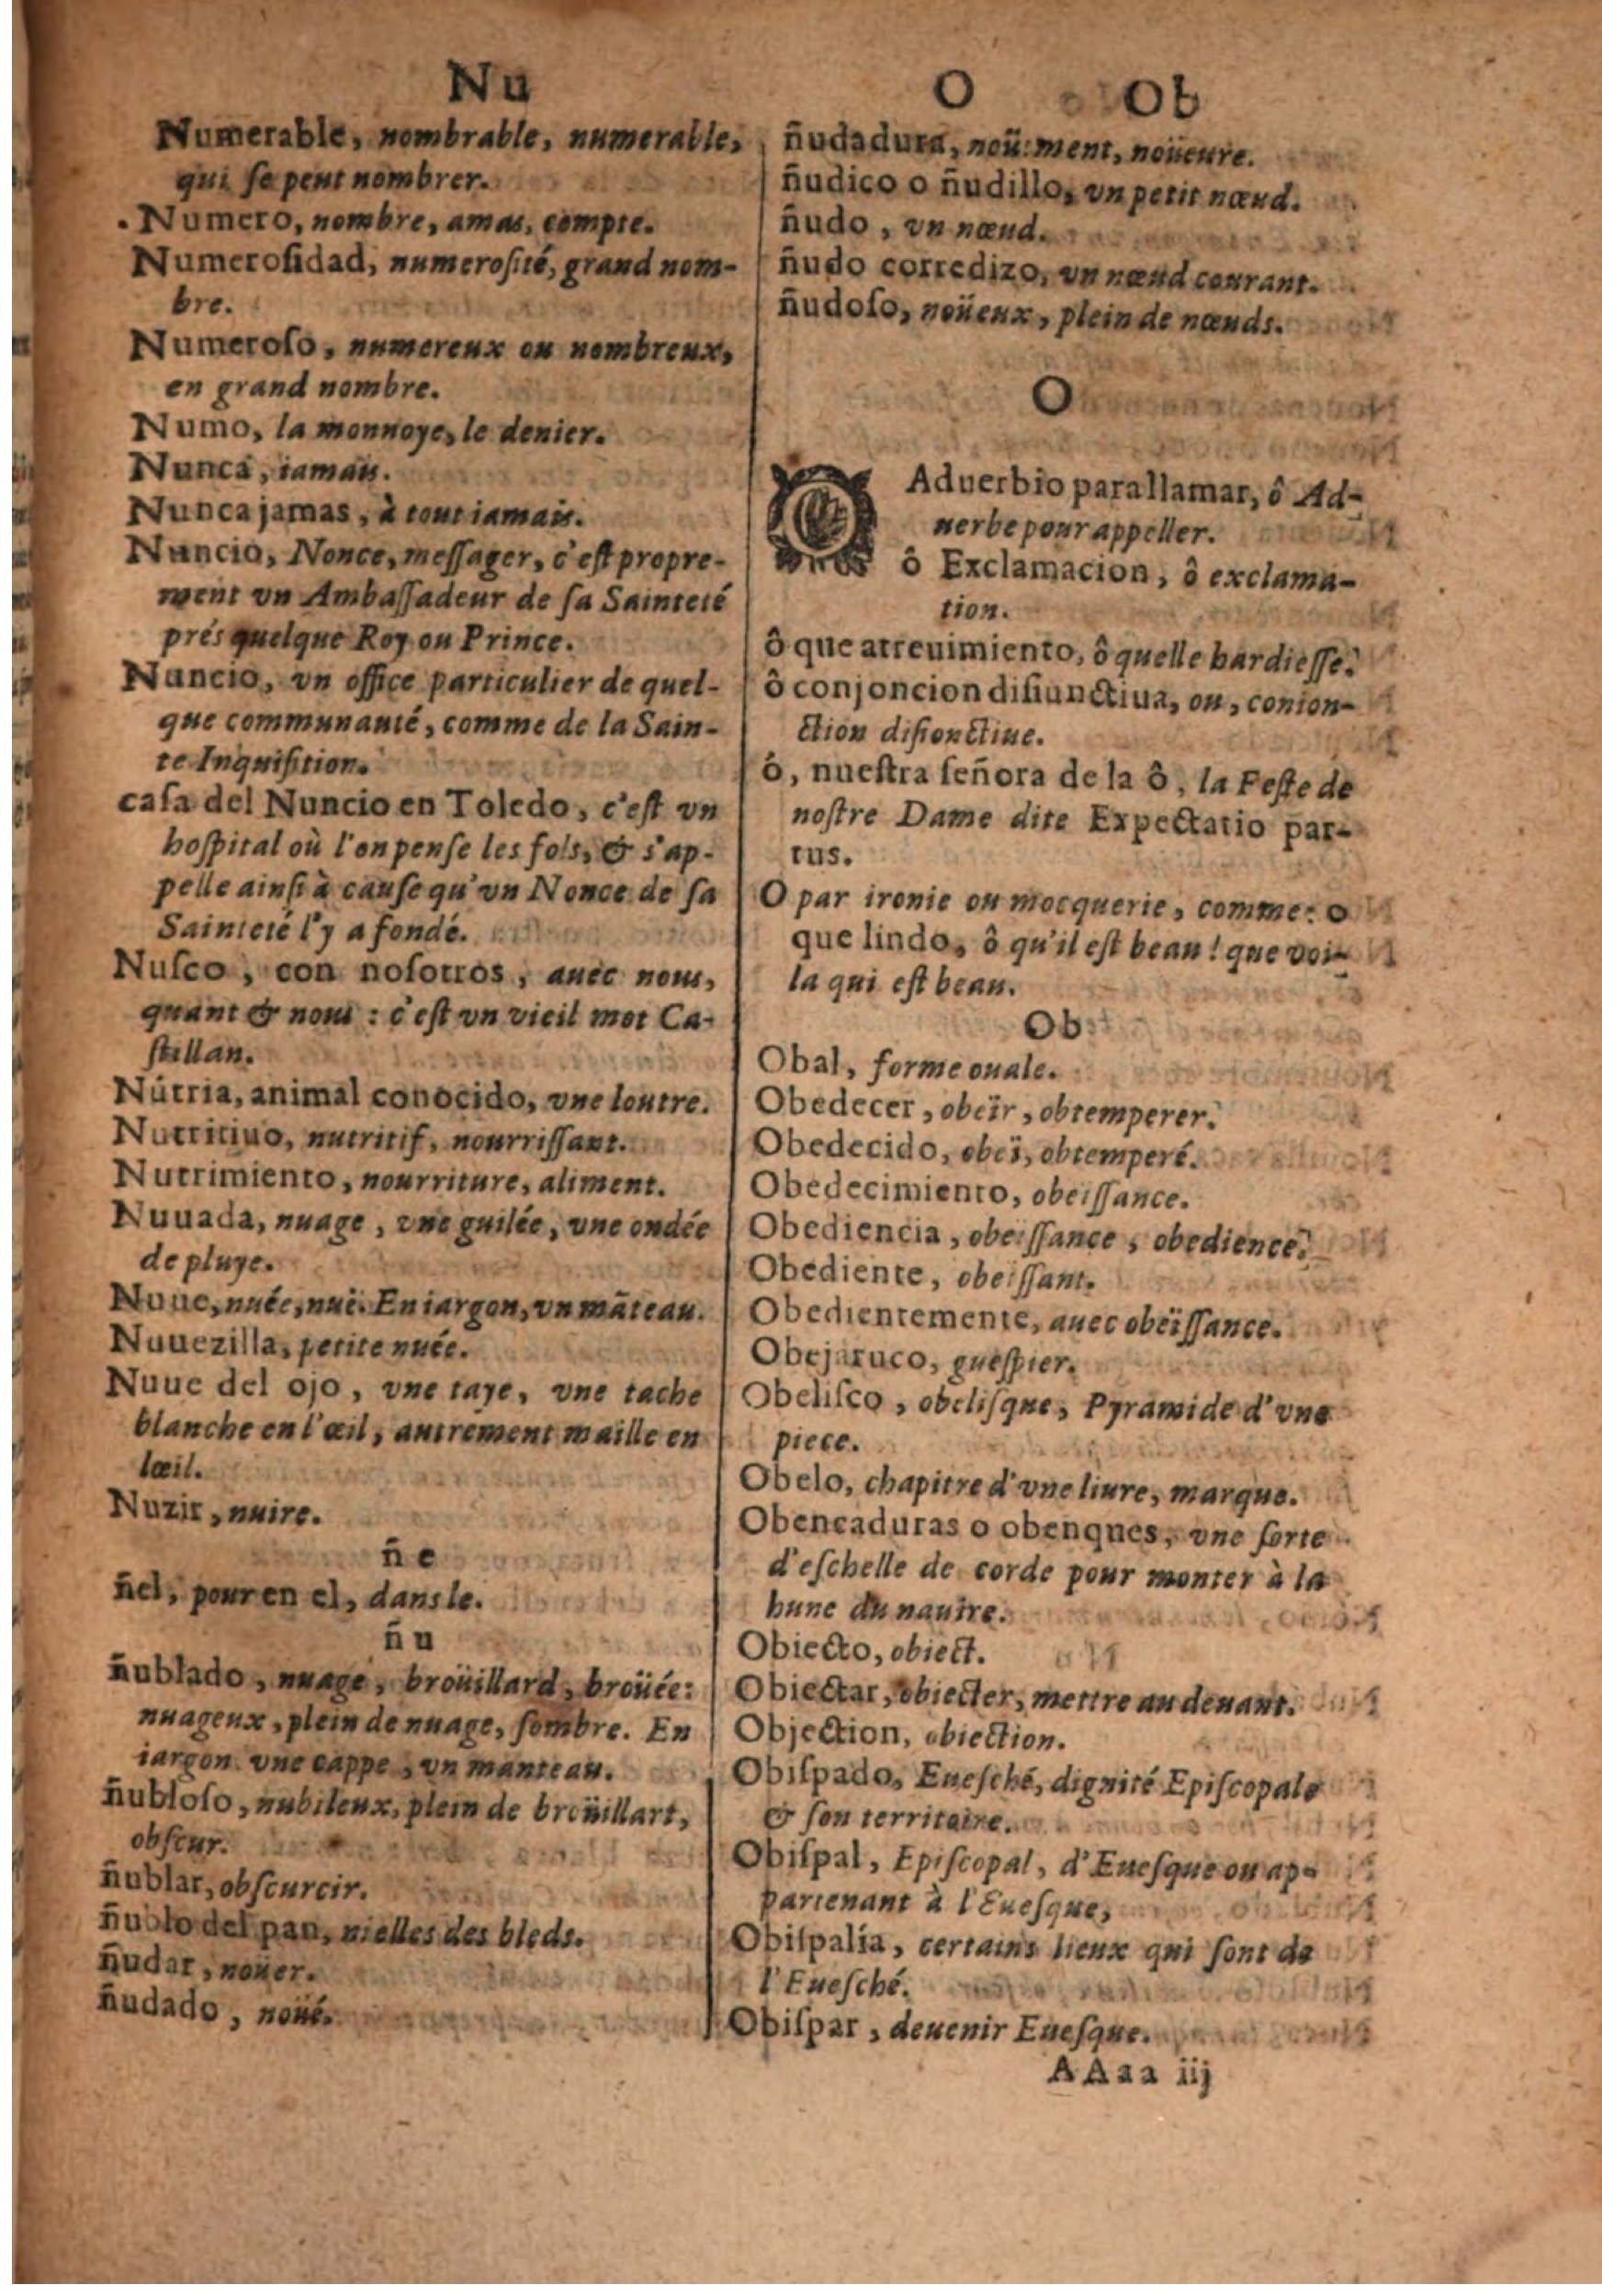 Nu
Numerable, nombrable, numerable,
qui ſe peut nombrer.
Numero, nombre, amas, compte.
Numeroſidad, numeroſité, grand nom-
bre.
Numeroſo, numereux ou nombreux,
en grand nombre.
Numo, la monnoye, le denier.
Nunca, iamais.
Nunca jamas, à tout iamais.
Nuncio, Nonce, meſſager, c'eſt propre-
ment vn Ambaſſadeur de ſa Sainteté
prés quelque Roy ou Prince.
Nuncio, vn office particulier de quel-
que communauté, comme de la Sain-
te Inquiſition.
caſa del Nuncio en Toledo, c'eſt vn
hoſpital où l'on penſe les fols, & s'ap-
pelle ainſi à cauſe qu'vn Nonce de ſa
Sainteté l'y a fondé.
Nuſco, con noſotros, auec nous,
quant & nous : c'eſt vn vieil mot Ca-
ſtillan.
Nútria, animal conocido, vne loutre.
Nutritiuo, nutritif, nourriſſant.
Nutrimiento, nourriture, aliment.
Nuuada, nuage, vne guilée, vne ondée
de pluye.
Nuue, nuée, nuë. En iargon, vn mãteau.
Nuuezilla, petite nuée.
Nuue del ojo, vne taye, vne tache
blanche en l'œil, autrement maille en
lœil.
Nuzir, nuire.
ñe
ñel, pour en el, dans le.
ñu
ñublado, nuage, broüillard, broüée:
nuageux, plein de nuage, ſombre. En
iargon vne cappe, vn manteau.
ñubloſo, nubileux, plein de broüillart,
obſcur.
ñublar, obſcurcir.
ñublo del pan, nielles des bleds.
ñudar, noüer.
ñudado, noüé.
O Ob
ñudadura, noüement, noüeure.
ñudico o ñudillo, vn petit nœud.
ñudo, vn nœud.
ñudo corredizo, vn nœud courant.
ñudoſo, noüeux, plein de nœuds.
O
O Aduerbio para llamar, ô Ad-
uerbe pour appeller.
ô Exclamacion, ô exclama-
tion.
ô que atreuimiento, ô quelle hardieſſe!
ô conjoncion diſiunctiua, ou, conion-
ction diſionctiue.
ó, nueſtra ſeñora de la ô, la Feſte de
noſtre Dame dite Expectatio par-
tus.
O par ironie ou mocquerie, comme: o
que lindo, ô qu'il eſt beau! que voi-
la qui eſt beau.
Ob
Obal, forme ouale.
Obedecer, obeïr, obtemperer.
Obedecido, obeï, obtemperé.
Obedecimiento, obeiſſance.
Obediencia, obeiſſance, obedience.
Obediente, obeiſſant.
Obedientemente, auec obeïſſance.
Obejaruco, gueſpier.
Obeliſco, obeliſque, Pyramide d'vne
piece.
Obelo, chapitre d'vne liure, marque.
Obencaduras o obenques, vne ſorte
d'eſchelle de corde pour monter à la
hune du nauire.
Obiecto, obiect.
Obiectar, obiecter, mettre au deuant.
Objection, obiection.
Obiſpado, Eueſché, dignité Epiſcopale
& ſon territoire.
Obiſpal, Epiſcopal, d'Eueſque ou ap-
partenant à l'Eueſque,
Obiſpalía, certains lieux qui ſont de
l'Eueſché.
Obiſpar, deuenir Eueſque.
AAaa iij